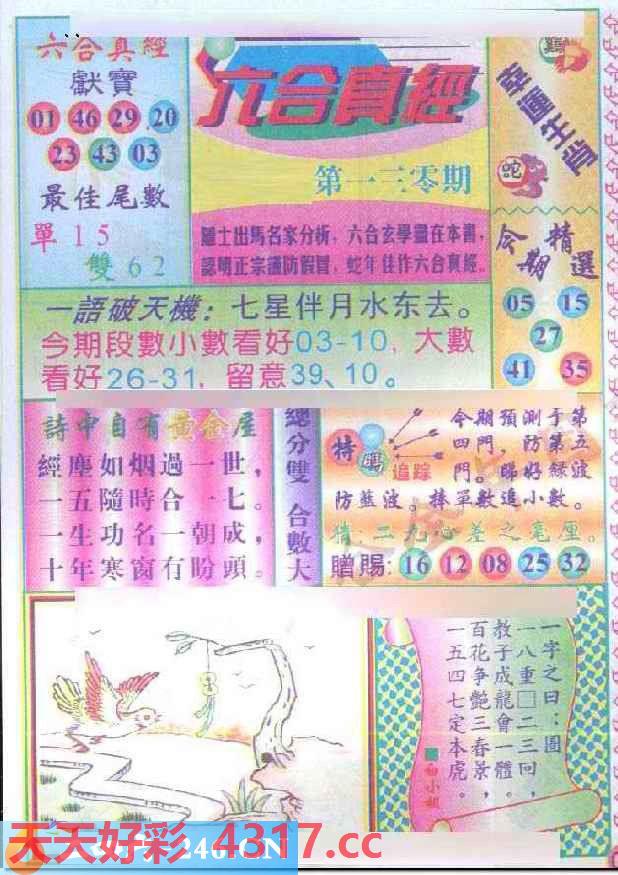 六合真經
獻寶
01 46 29 20
23 43 03
最佳尾數
單15
雙62
六合真經
第一三零期
隱士出馬名家分析，六合玄學盡在本書，
認明正宗謹防假冒，蛇年佳作六合真經。
鷄
寫生畫
蛇
今期精選
05 15
27
41 35
一語破天機：七星伴月水东去。
今期段數小數看好03-10，大數
看好26-31，留意39、10。
詩中自有黃金屋
經塵如烟過一世，
一五隨時合一七。
一生功名一朝成，
十年寒窗有盼頭。
總分雙 合數大
特碼
追踪
今期預測于第
四門，防第五
門。睇好綠波
防藍波。捧單數追小數。
猜：二九心差之毫厘。
贈賜：16 12 08 25 32
一字之曰：圖
一八重□二三回，
教子成龍會一體。
百花争艷三春景，
一五四七定本虎。
白小姐
天天好彩 4317.cc
246.CN